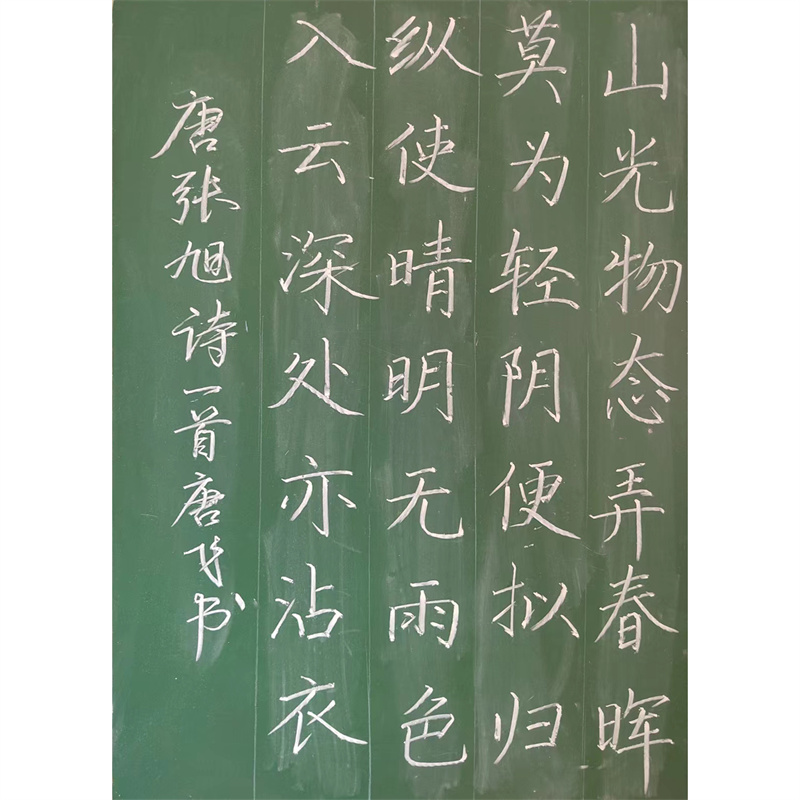 山光物态弄春晖
莫为轻阴便拟归
纵使晴明无雨色
入云深处亦沾衣
唐张旭诗一首唐飞书